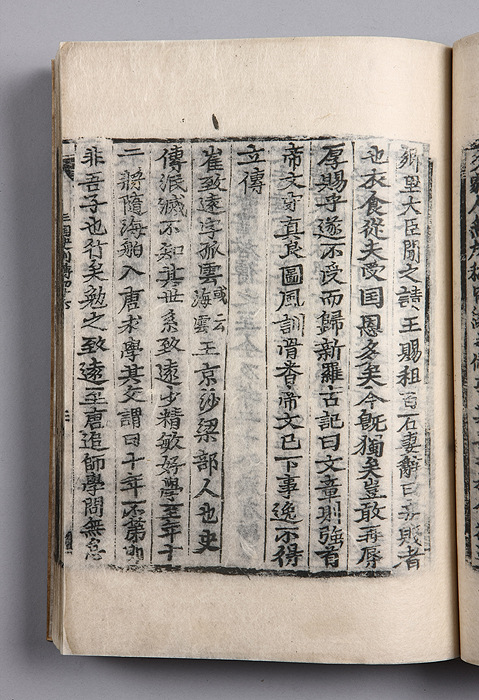 鄕里大臣聞之請王賜租百石妻辭曰妾賤者
也衣食從夫受国恩多矣今旣獨矣豈敢再辱
厚賜乎遂不受而歸新羅古記曰文章則強首
帝文守真良圖風訓骨沓帝文已下事逸不得
立傳
崔致遠字孤雲或云海雲王京沙梁部人也史
傳泯滅不知其世系致遠少精敏好學至年十
二將隨海舶入唐求學其父謂曰十年不第則
非吾子也行矣勉之致遠至唐追師學問無怠